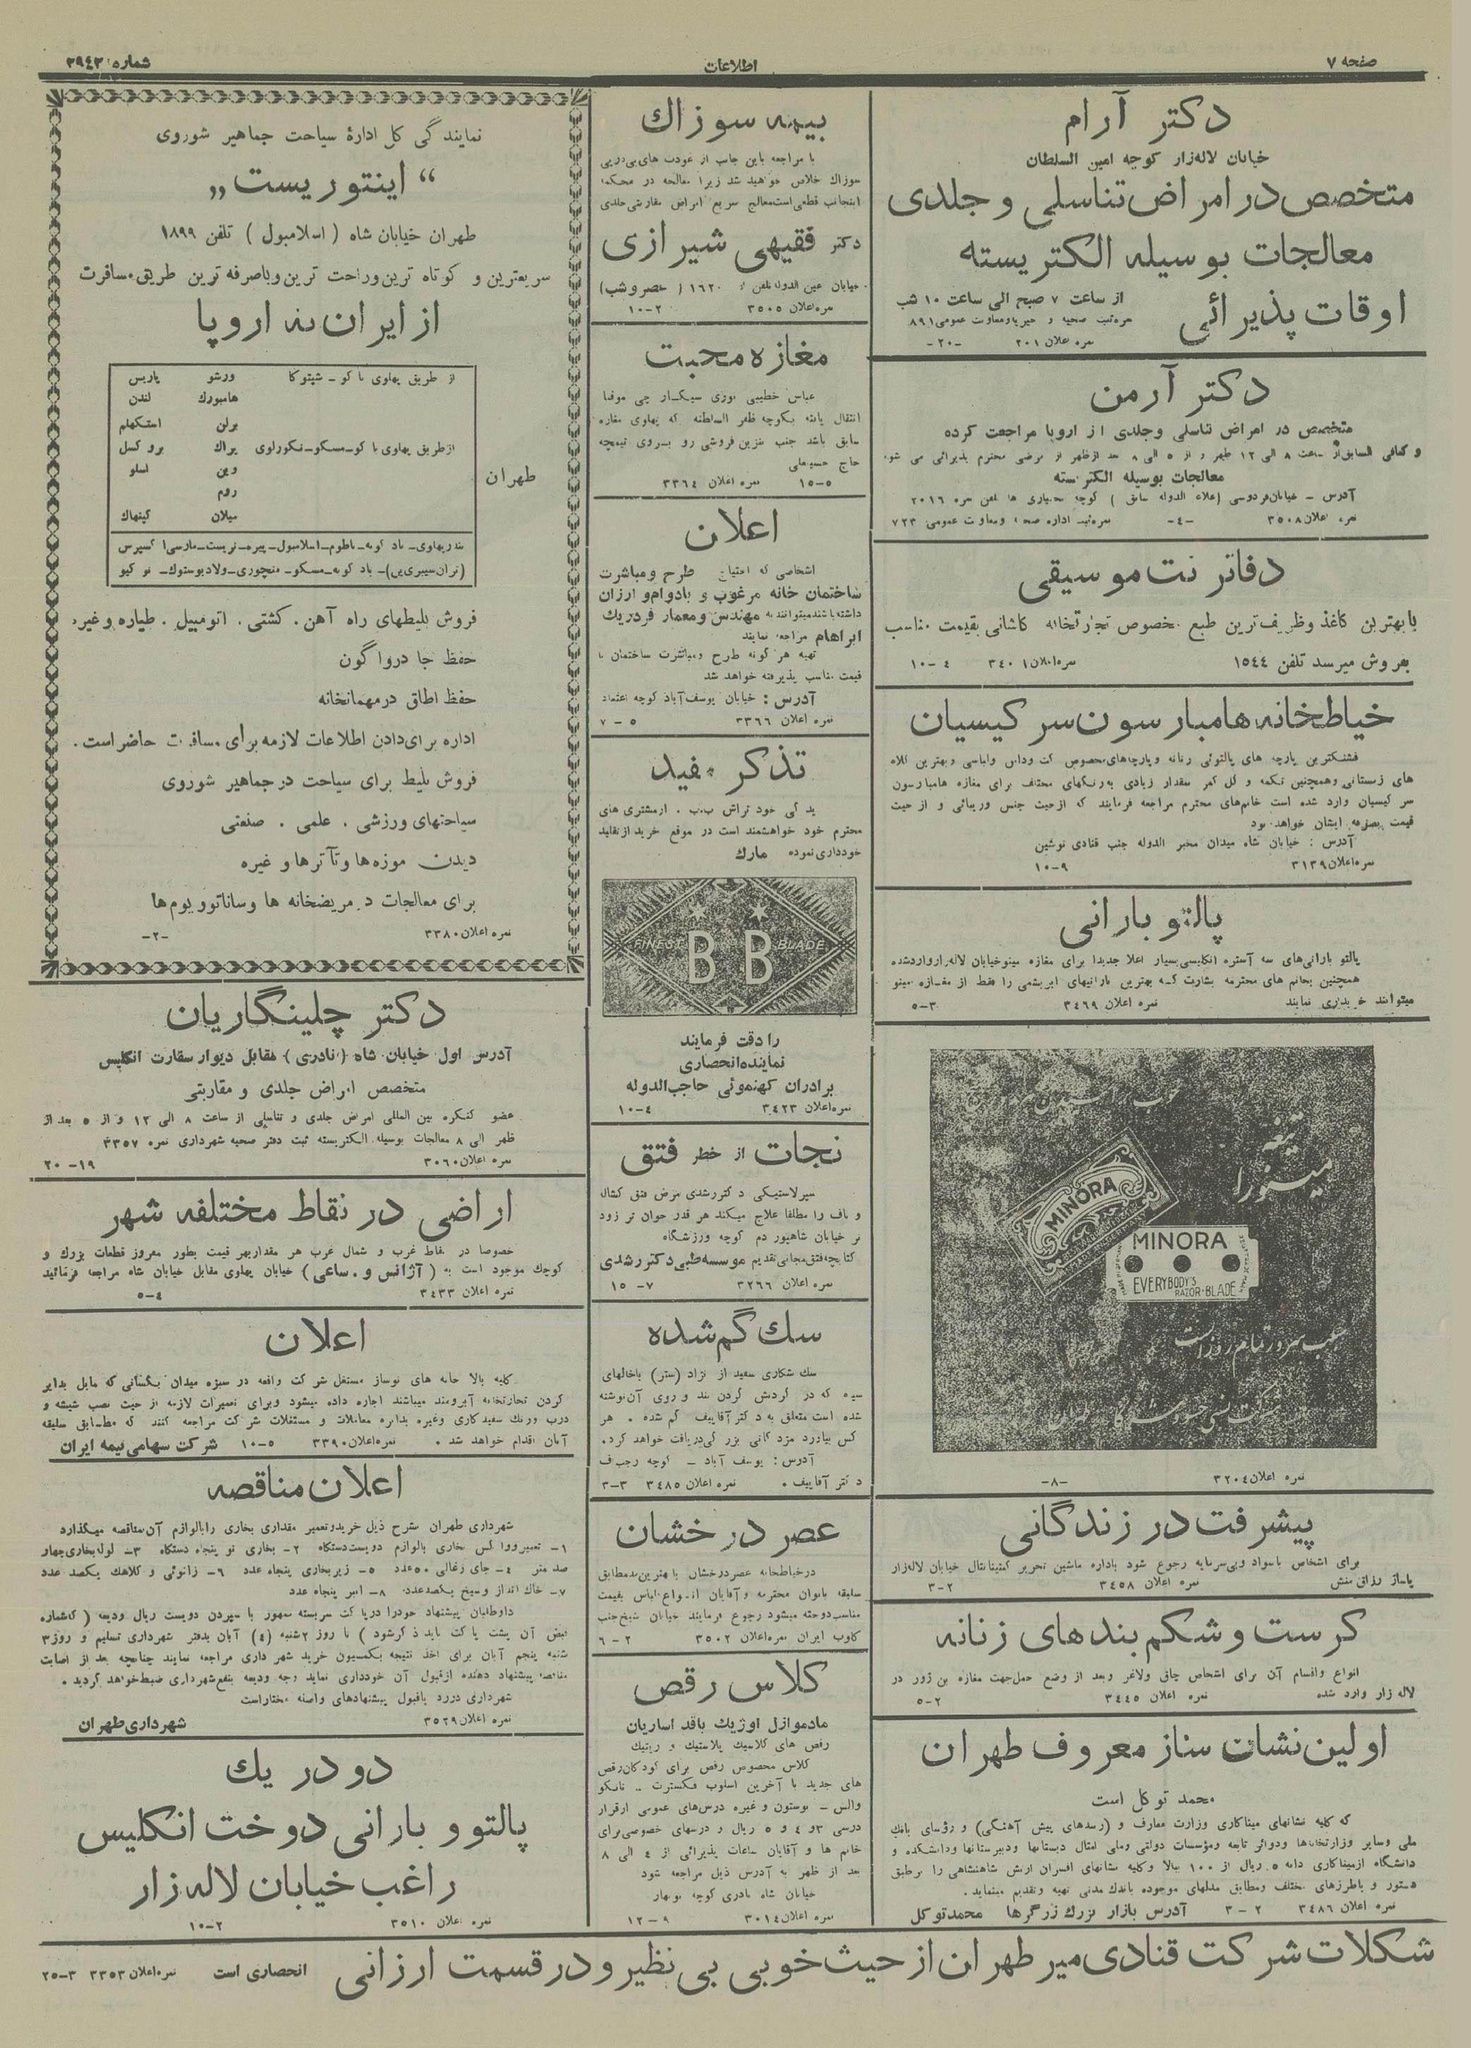 صفحه ۷
اطلاعات
شماره ۳۹۴۳
دکتر آرام
خیابان لاله‌زار کوچه امین السلطان
متخصص در امراض تناسلی و جلدی
معالجات بوسیله الکتریسته
اوقات پذیرائی
از ساعت ۷ صبح الی ساعت ۱۰ شب
نمره اعلان ۲۰۱ -۲۰-
دکتر آرمن
متخصص در امراض تناسلی و جلدی از اروپا مراجعت کرده
معالجات بوسیله الکتریسته
نمره اعلان ۳۵۰۸ -۴-
دفاتر نت موسیقی
با بهترین کاغذ و ظریف‌ترین طبع مخصوص تجارتخانه کاشانی بقیمت مناسب
بفروش میرسد تلفن ۱۵۴۴ نمره اعلان ۳۴۰۱ ۴-۱۰
خیاطخانه هامبارسون سرکیسیان
سرکیسیان وارد شده است خانم‌های محترم مراجعه فرمایند که از حیث جنس و زیبائی و از حیث
آدرس : خیابان شاه میدان مخبر الدوله جنب قنادی نوشین
نمره اعلان ۳۱۳۹ ۹-۱۰
پالتو بارانی
پالتو بارانی‌های سه آستره انگلیسی بسیار اعلا جدیدا برای مغازه مینو خیابان لاله‌زار وارد شده
همچنین بخانم های محترمه بشارت که بهترین بارانیهای ابریشمی را فقط از مغازه مینو
میتوانند خریداری نمایند نمره اعلان ۳۴۶۹ ۳-۵
تیغه
مینورا
MINORA
MINORA
EVERYBODY'S
RAZOR-BLADE
نمره اعلان ۳۲۰۴ -۸-
پیشرفت در زندگانی
برای اشخاص باسواد و بی‌سرمایه رجوع شود باداره ماشین تحریر کنتیناتال خیابان لاله‌زار
نمره اعلان ۳۴۵۸ ۲-۳
کرست و شکم بندهای زنانه
انواع و اقسام آن برای اشخاص چاق و لاغر و بعد از وضع حمل جهت مغازه بن ژور در
لاله زار وارد شده نمره اعلان ۳۴۴۵ ۲-۵
اولین نشان ساز معروف طهران
محمد توکل است
که کلیه نشانهای میناکاری وزارت معارف و (رسدهای پیش آهنگی) و رؤسای بانک
ملی و سایر وزارتخانه‌ها و دوائر تابعه و مؤسسات دولتی و ملی امثال دبستانها و دبیرستانها و دانشکده و
دستور و باطرزهای مختلف و مطابق مدلهای موجوده باندک مدتی تهیه و تقدیم مینماید.
نمره اعلان ۳۴۸۶ ۲-۳ آدرس بازار بزرگ زرگرها محمد توکل
بیمه سوزاک
دکتر فقیهی شیرازی
خیابان عین الدوله تلفن ۱۶۲۰ (عصر و شب)
نمره اعلان ۳۵۰۵ ۲-۱۰
مغازه محبت
عباس خطیبی نوری سیگار چی موقتا
انتقال یافته بکوچه ظفر السلطنه که پهلوی مغازه
سابق باشد جنب بنزین فروشی رو بروی تیمچه
حاج حسینعلی
نمره اعلان ۳۳۶۴ ۵-۱۵
اعلان
اشخاصی که احتیاج طرح و مباشرت
ساختمان خانه مرغوب و بادوام و ارزان
داشته باشند میتوانند به مهندس و معمار فردریک
ابراهام مراجعه نمایند
تهیه هر گونه طرح و مباشرت ساختمان با
قیمت مناسب پذیرفته خواهد شد
آدرس : خیابان یوسف آباد کوچه اعتماد
نمره اعلان ۳۳۶۶ ۵-۷
تذکر مفید
محترم خود خواهشمند است در موقع خرید از تقلید
خودداری نموده مارک
FINEST BB BLADE
را دقت فرمایند
نماینده انحصاری
برادران کهنموئی حاجب‌الدوله
نمره اعلان ۳۴۲۳ ۴-۱۰
نجات از خطر فتق
سپرلاستیکی دکتر رشدی مرض فتق کشال
و ناف را مطلقا علاج میکند هر قدر جوان تر زود
تر خیابان شاهپور دم کوچه ورزشگاه
کتابچه فتق مجانی تقدیم موسسه طبی دکتر رشدی
نمره اعلان ۳۲۶۶ ۷-۱۵
سگ گم شده
سگ شکاری سفید از نژاد (ستر) باخالهای
سیاه که در گردنش گردن بند و روی آن نوشته
شده است متعلق به دکتر آقاییف گم شده . هر
کس بیاورد مزد کافی بزرگی دریافت خواهد کرد.
آدرس : یوسف آباد - کوچه رجب‌اف
دکتر آقاییف . نمره اعلان ۳۴۸۵ ۳-۳
عصر درخشان
در خیاطخانه عصر درخشان با بهترین مد مطابق
سلیقه بانوان محترمه و آقایان انواع لباس بقیمت
مناسب دوخته میشود رجوع فرمایند خیابان شیخ جنب
کلوب ایران نمره اعلان ۳۵۰۲ ۲-۶
کلاس رقص
مادموازل اوژیک باقداساریان
رقص های کلاسیک پلاستیک و ریتیک
کلاس مخصوص رقص برای کودکان رقص
های جدید با آخرین اسلوب فکسترت .. تانگو
والس - بوستون و غیره درس‌های عمومی از قرار
درسی ۳ و ۴ و ۵ ریال و درسهای خصوصی برای
خانم ها و آقایان ساعات پذیرائی از ۴ الی ۸
بعد از ظهر به آدرس ذیل مراجعه شود
خیابان شاه نادری کوچه نوبهار
نمره اعلان ۳۰۱۴ ۹-۱۲
نمایندگی کل ادارهٔ سیاحت جماهیر شوروی
“ اینتوریست „
طهران خیابان شاه ( اسلامبول ) تلفن ۱۸۹۹
سریعترین و کوتاه ترین و راحت ترین و باصرفه ترین طریق مسافرت
از ایران به اروپا
طهران
از طریق پهلوی باکو - شپتوکا ورشو پاریس
هامبورک لندن
برلن استکهلم
از طریق پهلوی باکو-مسکو-نگورلوی پراک بروکسل
وین اسلو
روم
میلان کپنهاک
بندر پهلوی- بادکوبه- باطوم- اسلامبول- پیره- تریست- مارسی اکسپرس
(تران سیبری‌ین)- بادکوبه- مسکو- منچوری- ولادیوستوک- توکیو
فروش بلیطهای راه آهن. کشتی. اتومبیل. طیاره و غیره
حفظ جا در واگون
حفظ اطاق در مهمانخانه
اداره برای دادن اطلاعات لازمه برای مسافرت حاضر است.
فروش بلیط برای سیاحت در جماهیر شوروی
سیاحتهای ورزشی . علمی . صنعتی
دیدن موزه‌ها و تآترها و غیره
برای معالجات در مریضخانه ها و ساناتوریوم‌ها
نمره اعلان ۳۳۸۰ -۲-
دکتر چلینگاریان
آدرس اول خیابان شاه (نادری) مقابل دیوار سفارت انگلیس
متخصص امراض جلدی و مقاربتی
عضو کنگره بین المللی امرض جلدی و تناسلی از ساعت ۸ الی ۱۲ و از ۵ بعد از
ظهر الی ۸ معالجات بوسیله الکتریسته ثبت دفتر صحیه شهرداری نمره ۳۳۵۷
نمره اعلان ۳۰۶۰ ۱۹-۲۰
اراضی در نقاط مختلفه شهر
خصوصا در نقاط غرب و شمال غرب هر مقدار بهر قیمت بطور مفروز قطعات بزرک و
کوچک موجود است به ( آژانس و. ساعی ) خیابان پهلوی مقابل خیابان شاه مراجعه فرمائید
نمره اعلان ۳۴۳۳ ۴-۵
اعلان
کلیه بالا خانه های نوساز مستغل شرکت واقعه در سبزه میدان بکسانی که مایل بدایر
کردن تجارتخانه آبرومند میباشند اجاره داده میشود و برای تعمیرات لازمه از حیث نصب شیشه و
درب و رنک سفیدکاری و غیره بداره معاملات و مستغلات شرکت مراجعه کنند که مطابق سلیقه
آنان اقدام خواهد شد . نمره اعلان ۳۳۹۰ ۵-۱۰ شرکت سهامی بیمه ایران
اعلان مناقصه
شهرداری طهران بشرح ذیل خرید و تعمیر مقداری بخاری را بالوازم آن مناقصه میگذارد
۱- تعمیر و واکس بخاری بالوازم دویست دستگاه ۲- بخاری نو پنجاه دستگاه ۳- لوله بخاری چهار
صد متر ۴- جای زغالی ۵۰ عدد ۵- زیر بخاری پنجاه عدد ۶- زانوئی و کلاهک یکصد عدد
۷- خاک انداز و سیخ یکصد عدد ۸- انبر پنجاه عدد
داوطلبان پیشنهاد خود را در پاکت سربسته ممهور با سپردن دویست ریال ودیعه ( که شماره
قبض آن پشت پاکت باید ذکر شود ) تا روز ۲ شنبه (۴) آبان بدفتر شهرداری تسلیم و روز ۳
شنبه پنجم آبان برای اخذ نتیجه بکمسیون خرید شهرداری مراجعه نمایند چنانچه بعد از اصابت
مناقصه پیشنهاد دهنده از قبول آن خودداری نماید وجه ودیعه بنفع شهرداری ضبط خواهد گردید .
شهرداری در رد یا قبول پیشنهادهای واصله مختار است
نمره اعلان ۳۵۲۹ شهرداری طهران
دو در یک
پالتو و بارانی دوخت انگلیس
راغب خیابان لاله زار
نمره اعلان ۳۵۱۰ ۲-۱۰
شکلات شرکت قنادی میر طهران از حیث خوبی بی نظیر و در قسمت ارزانی انحصاری است نمره اعلان ۳۳۵۳ ۳-۲۵